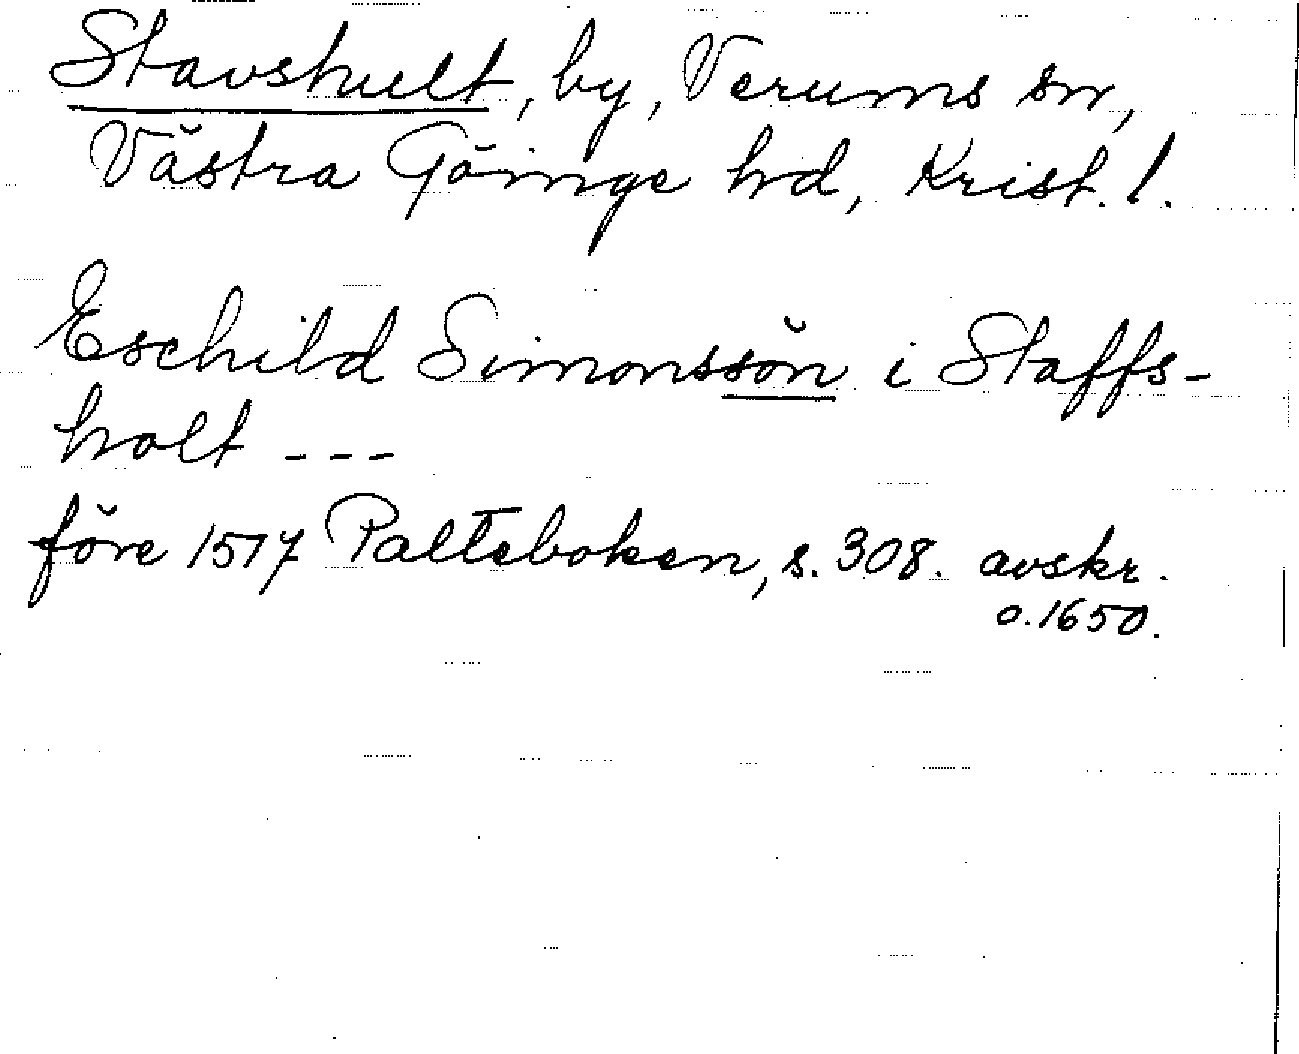 Stavshult, by, Verums sn,
Västra Göinge hd, Krist. l.
Eschild Simonssön i Staffs-
holt ---
före 1517 Palteboken, s. 308. avskr.
o. 1650.